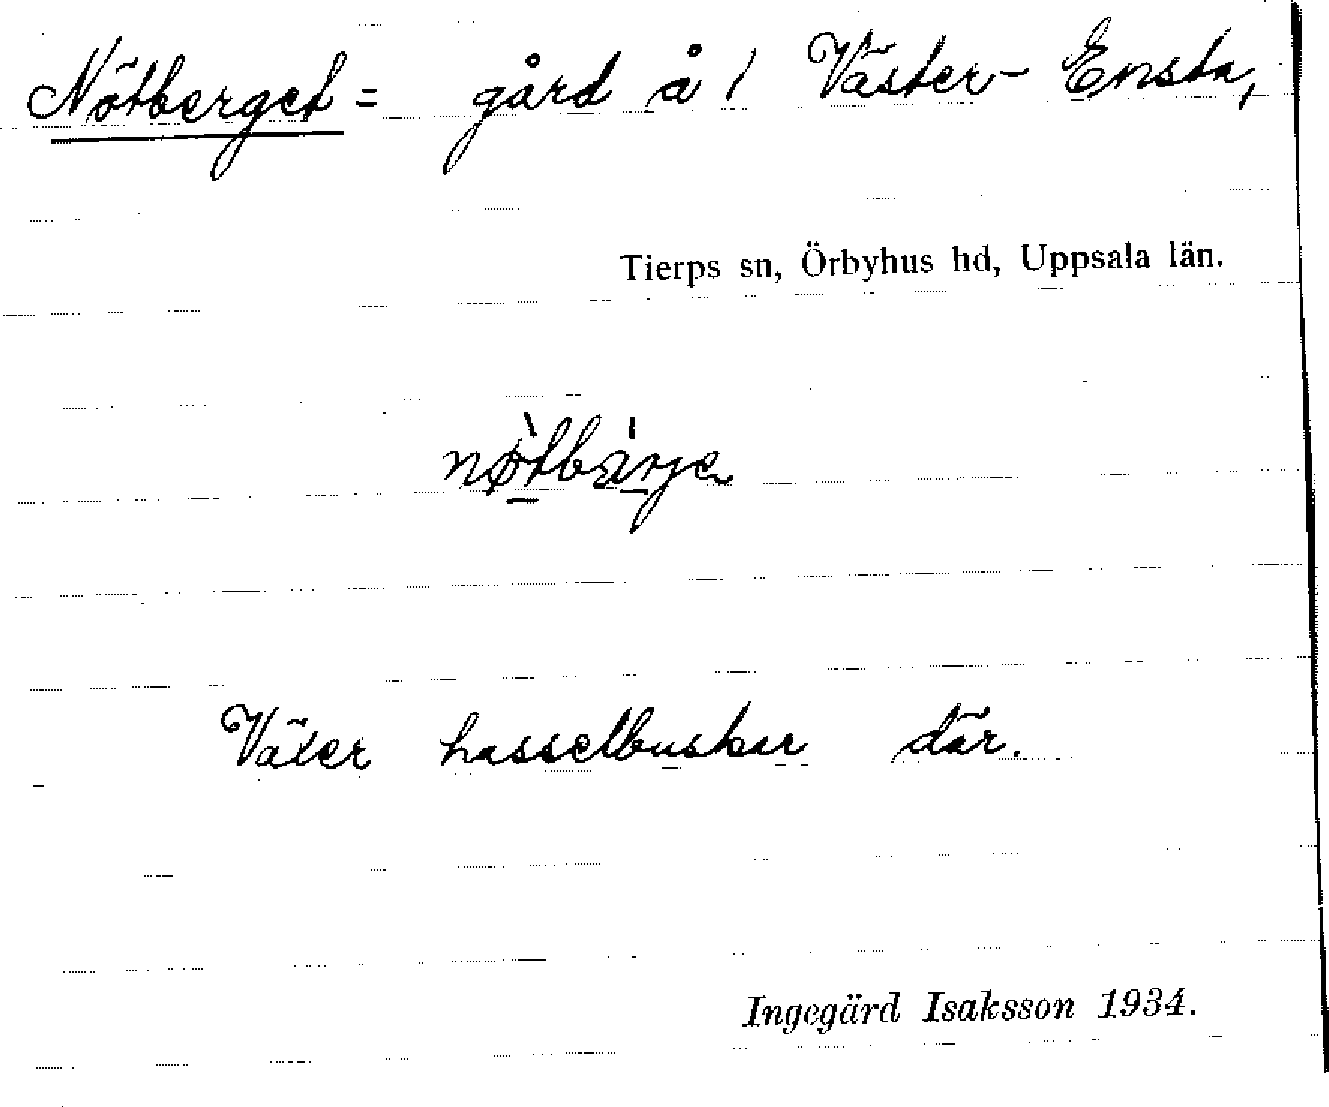 Nötberget = gård å 1 Väster-Ensta,
Tierps sn, Örbyhus hd, Uppsala län.
nø̀tbä̀rje
Växer hasselbuskar där.
Ingegärd Isaksson 1934.